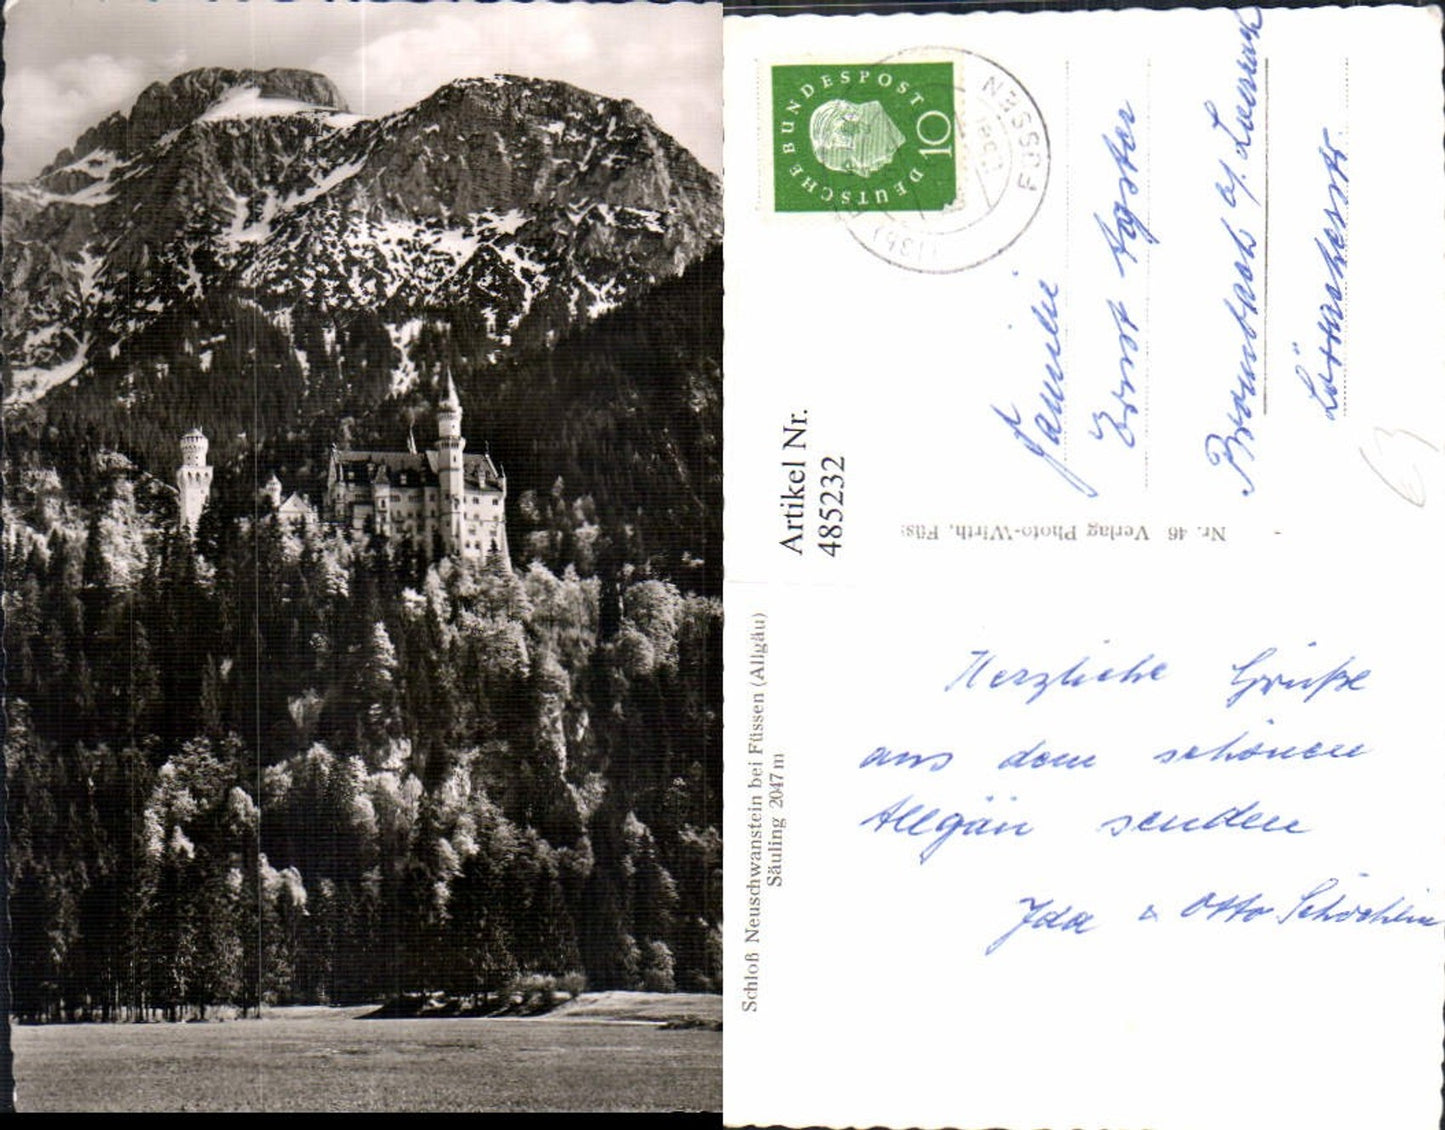 DEUTSCHE BUNDESPOST
10
FÜSSEN
Artikel Nr.
485232
Familie
Ernst Agster
Brombach b/. Loerrach
Lörracherstr.
Nr. 46 Verlag Photo-Wirth, Füs
Schloß Neuschwanstein bei Füssen (Allgäu)
Säuling 2047 m
Herzliche Grüße
aus dem schönen
Allgäu senden
Ida & Otto Schöchlin